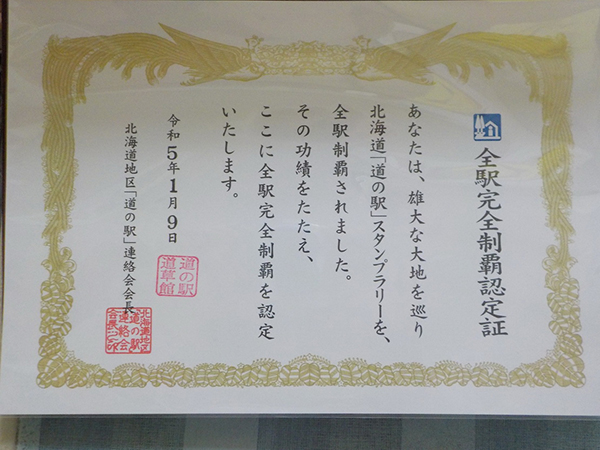 全駅完全制覇認定証
あなたは、雄大な大地を巡り
北海道「道の駅」スタンプラリーを、
全駅制覇されました。
その功績をたたえ、
ここに全駅完全制覇を認定
いたします。
令和5年1月9日
北海道地区「道の駅」連絡会会長
道の駅
道草館
北海道地区
道の駅
連絡会